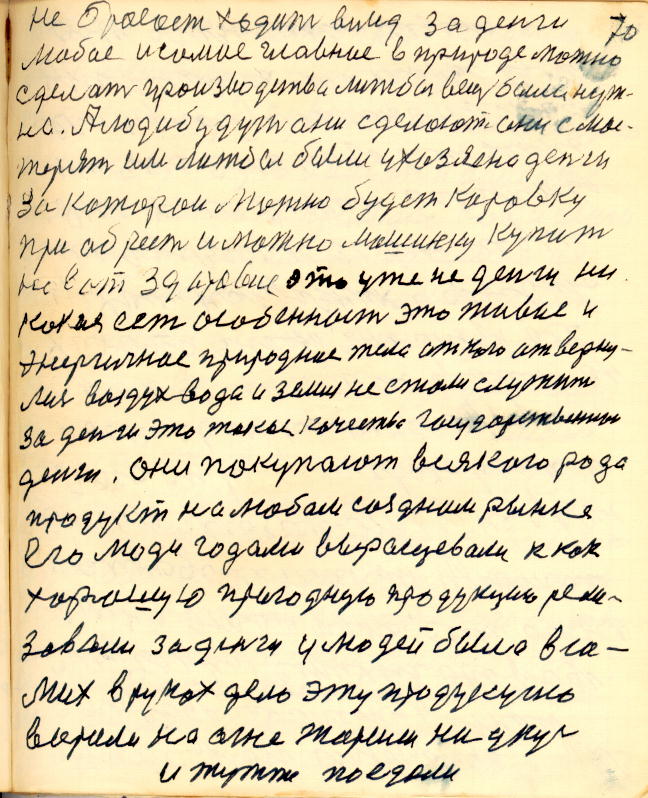 70
не бросает ходит в лид за денги
любое и самое главное в природе можно
сделат производства лит бы вещ была нуж-
на. А люди будут они сделают они смас-
терят им лит бы были у хозяена денги
За которои можно будет Коровку
при обрест и можно машинку купит
но вот здаровие это уже не денги ни
какая ест особенност это живое и
энергичное природное тела от кого отверну-
лис воздух вода и земля не стали служит
за денги это такое качества государственныи
денги. они покупают всякого рода
продукт на любом создном рынке
Его люди годами выращевали как
хорошую природную продукцию реали-
зовали за денги у людей было в са-
мих в руках дело эту продукцию
варили на огне жарили на
и тут же поедали